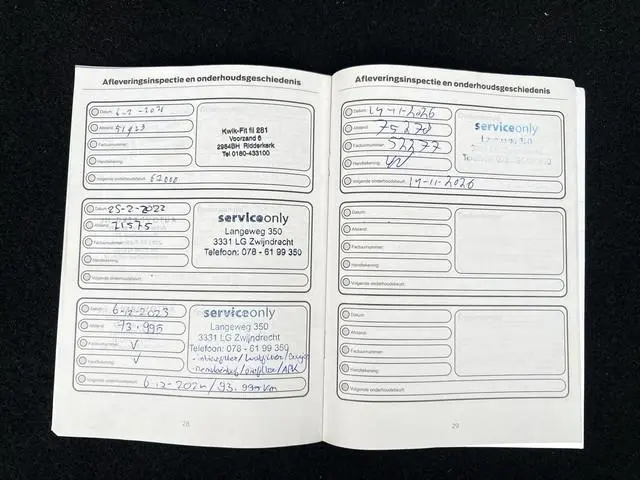 Afleveringsinspectie en onderhoudsgeschiedenis
Datum:
Afstand:
Factuurnummer:
Handtekening:
Volgende onderhoudsbeurt: 61000
Kwik-Fit fil 281
Voorzand 6
2984BH Ridderkerk
Tel 0180-433100
Datum: 25-2-2022
Afstand: 71575
Factuurnummer:
Handtekening:
Volgende onderhoudsbeurt:
serviceonly
Langeweg 350
3331 LG Zwijndrecht
Telefoon: 078 - 61 99 350
Datum: 6-12-2023
Afstand: 73.995
Factuurnummer: √
Handtekening: √
Volgende onderhoudsbeurt: 6-12-2024 / 93.995 km
serviceonly
Langeweg 350
3331 LG Zwijndrecht
Telefoon: 078 - 61 99 350
28
Afleveringsinspectie en onderhoudsgeschiedenis
Datum: 14-11-2026
Afstand: 75270
Factuurnummer: 52277
Handtekening:
Volgende onderhoudsbeurt: 14-11-2026
serviceonly
Langeweg 350
Datum:
Afstand:
Factuurnummer:
Handtekening:
Volgende onderhoudsbeurt:
Datum:
Afstand:
Factuurnummer:
Handtekening:
Volgende onderhoudsbeurt:
29